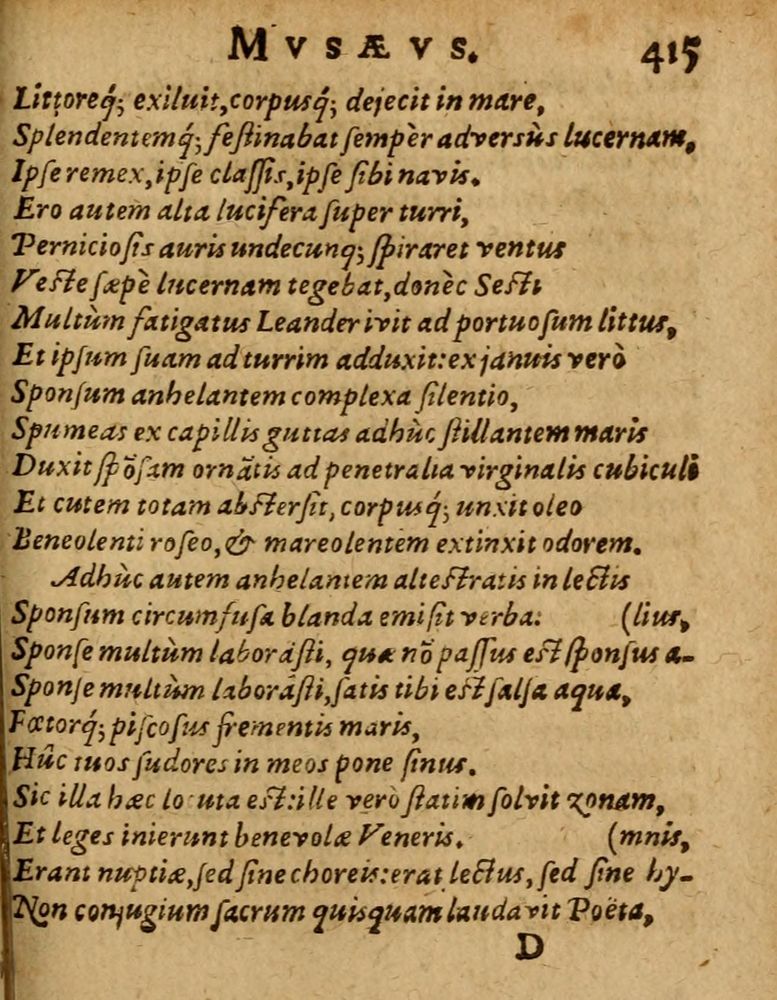 MVSÆVS. 415
Littoreq́; exiluit, corpusq́; dejecit in mare,
Splendentemq́; feſtinabat ſempèr adversùs lucernam,
Ipſe remex, ipſe claſſis, ipſe ſibi navis.
Ero autem alta lucifera ſuper turri,
Pernicioſis auris undecunq; ſpiraret ventus
Veſte ſæpè lucernam tegebat, donèc Seſti
Multùm fatigatus Leander ivit ad portuoſum littus,
Et ipſum ſuam ad turrim adduxit: ex januis verò
Sponſum anhelantem complexa ſilentio,
Spumeas ex capillis guttas adhùc ſtillantem maris
Duxit ſpõſam ornãtis ad penetralia virginalis cubiculi
Et cutem totam abſterſit, corpusq́; unxit oleo
Beneolenti roſeo, & mareolentem extinxit odorem.
Adhùc autem anhelantem alteſtratis in lectis
Sponſum circumfuſa blanda emiſit verba: (lius,
Sponſe multùm laboráſti, quæ nõ paſſus eſt ſponſus a-
Sponſe multùm laboráſti, ſatis tibi eſt ſalſa aqua,
Fœtorq́; piſcoſus frementis maris,
Hûc tuos ſudores in meos pone ſinus.
Sic illa hæc locuta eſt: ille verò ſtatim ſolvit zonam,
Et leges inierunt benevolæ Veneris. (mnis,
Erant nuptiæ, ſed ſine choreis: erat lectus, ſed ſine hy-
Non conjugium ſacrum quisquam laudavit Poëta,
D